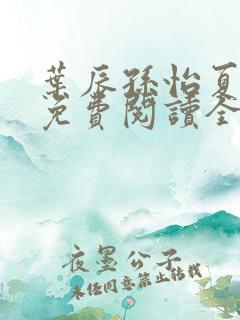 葉辰孫怡夏
免費閱讀全
夜墨公子
未經同意禁止轉載